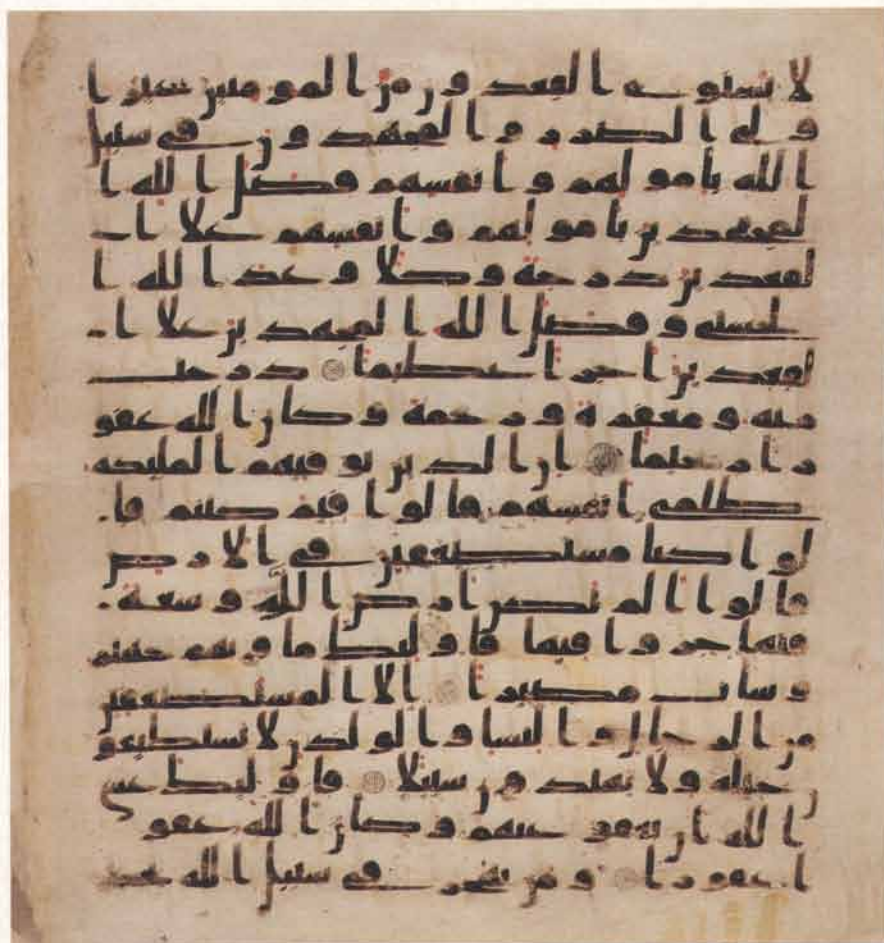 لا يستوى القعدون من المومنين غير ا
ولى الضرر والمجهدون فى سبيل
الله بامولهم وانفسهم فضل الله ا
لمجهدين بامولهم وانفسهم علا ا
لقعدين درجة وكلا وعد الله ا
لحسنى وفضل الله المجهدين علا ا
لقعدين اجرا عظيما درجت
منه ومغفرة ورحمة وكان الله غفو
را رحيما ان الذين توفيهم المليكه
ظلمى انفسهم قالوا فيم كنتم قا
لوا كنا مستضعفين فى الارض
قالوا الم تكن ارض الله وسعة
فتهاجروا فيها فاوليك ماويهم جهنم
وسات مصيرا الا المستضعفين
من الرجال والنسا والولدن لا يستطيعو
ن حيله ولا يهتدون سبيلا فاوليك عسى
الله ان يعفو عنهم وكان الله عفو
ا غفورا ومن يهجر فى سبيل الله يجد